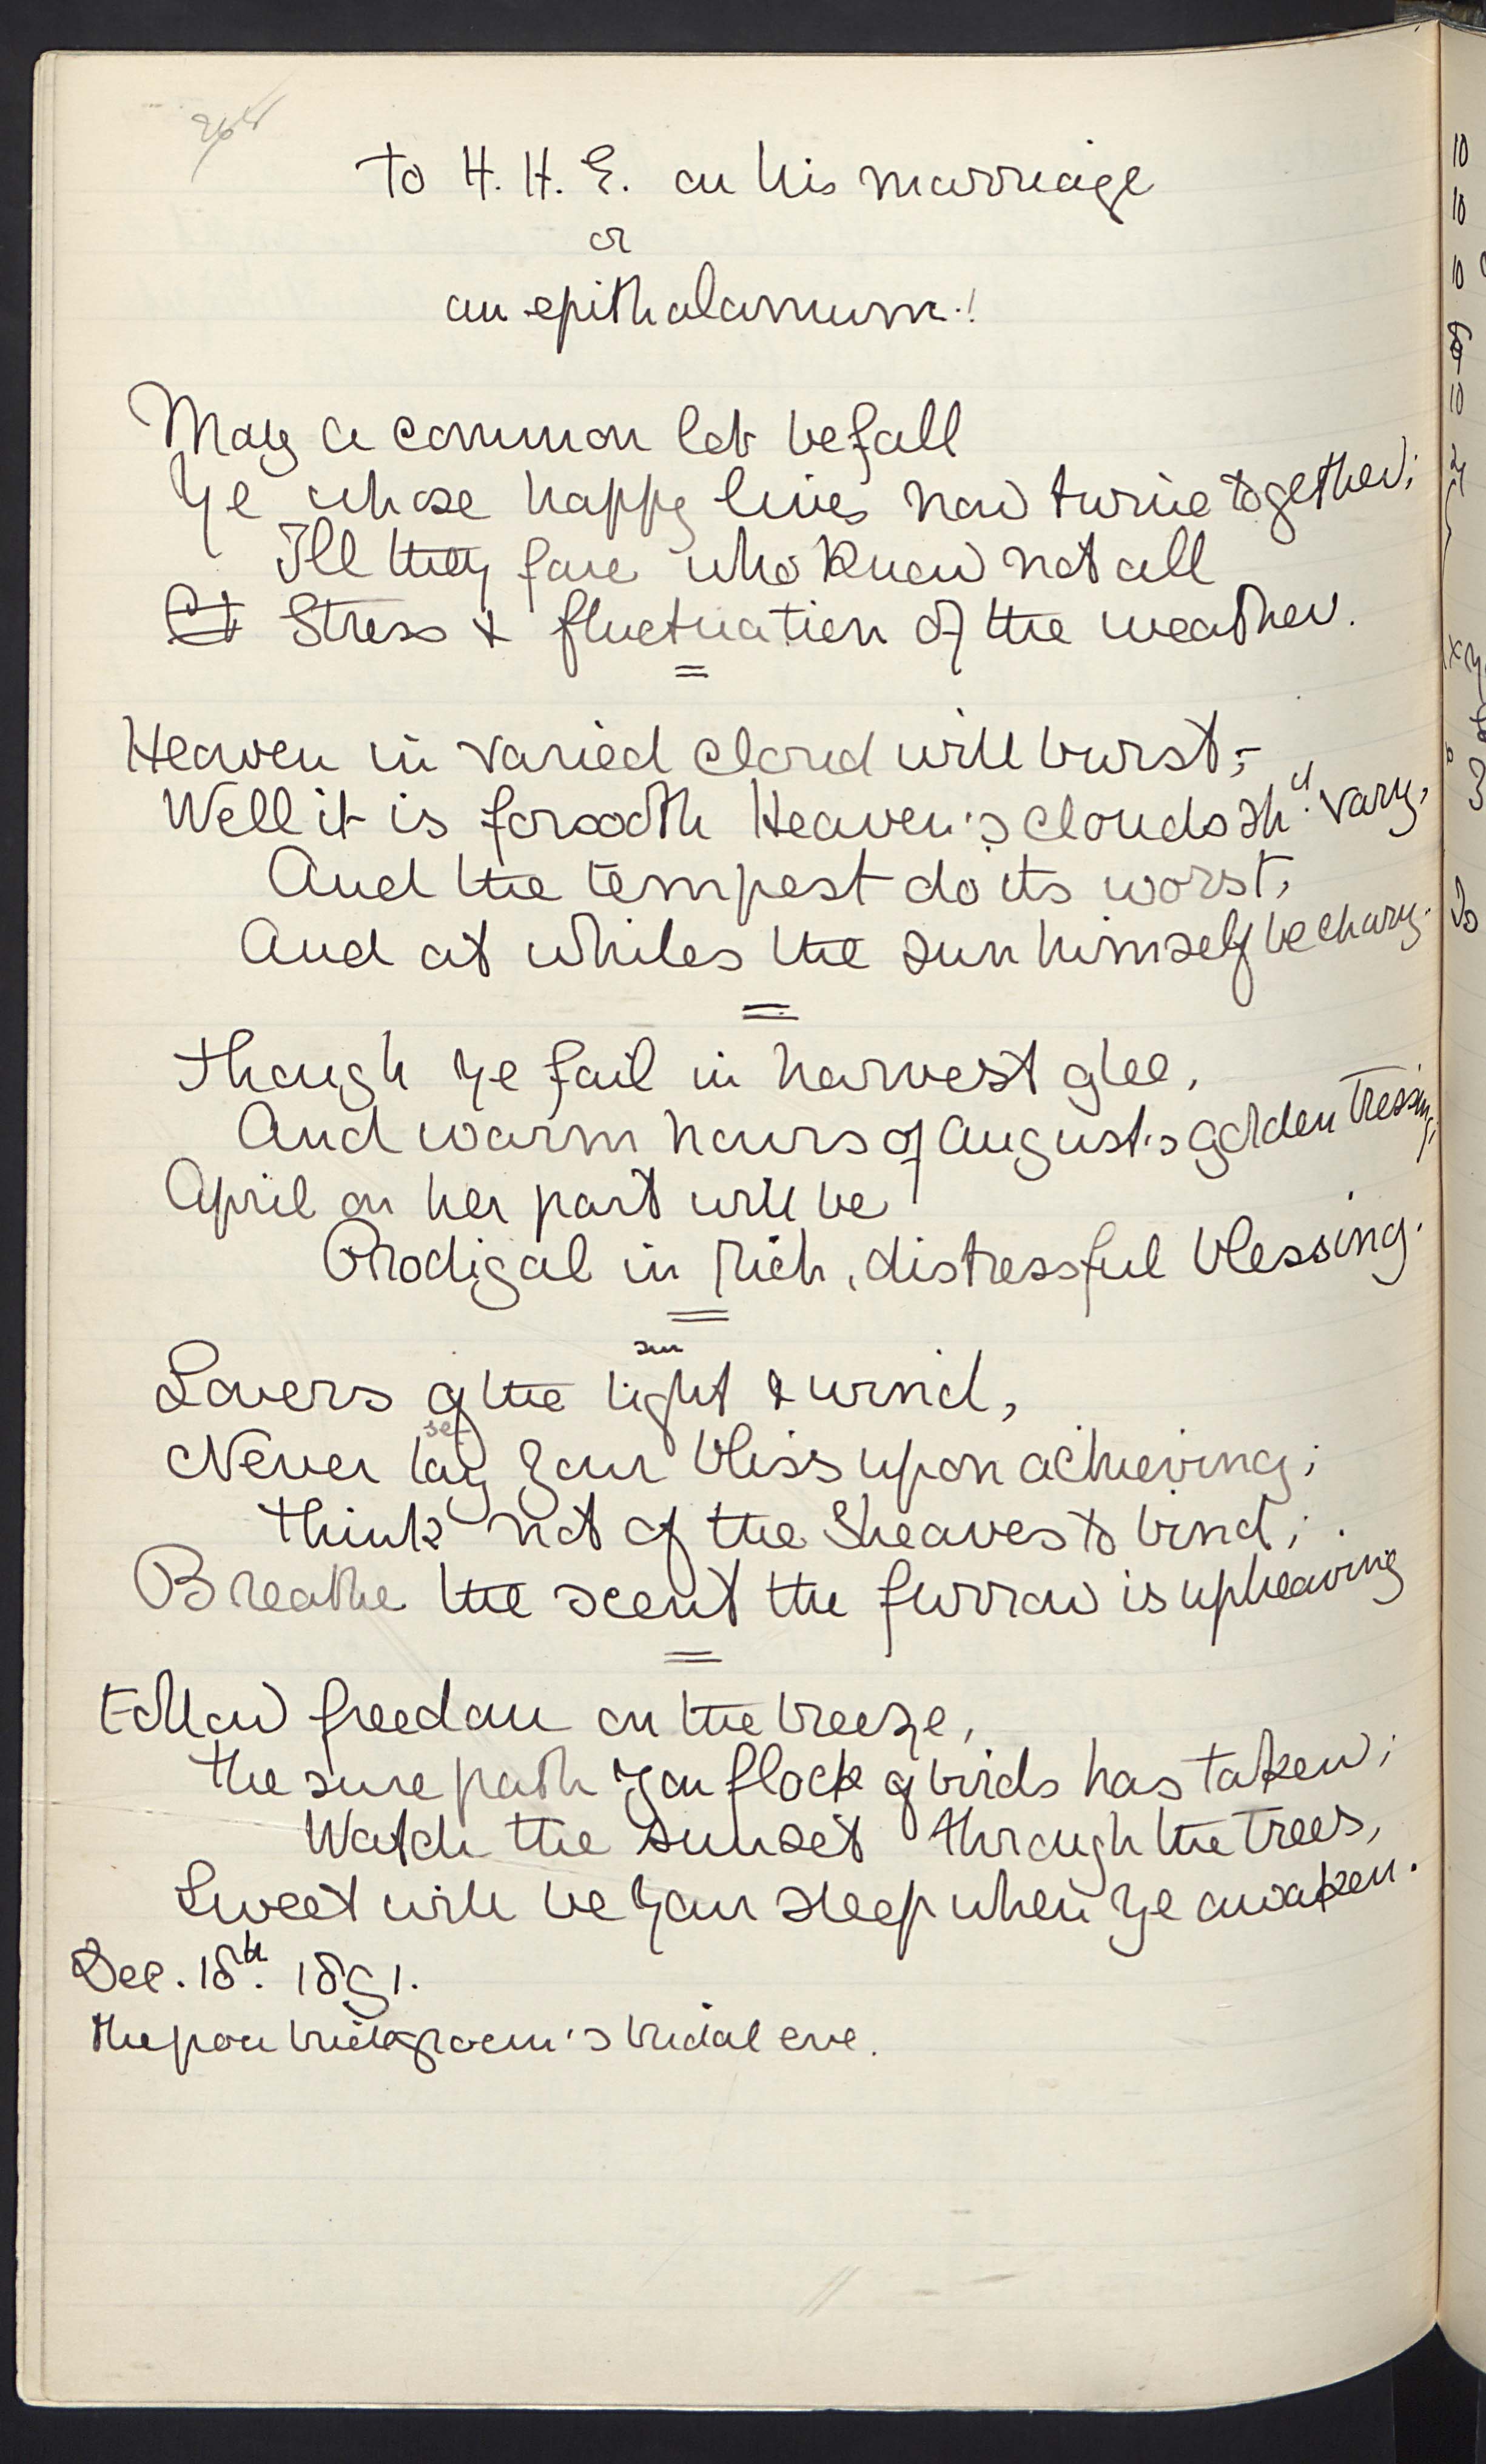 To H. H. E. on his marriage
or
an epithalamium.!
May a common lot befall
Ye whose happy lives now twine together;
Ill they fare who know not all
Stress & fluctuation of the weather.
Heaven in varied cloud will burst;-
Well it is forsooth Heaven's clouds shd. vary,
And the tempest do its worst,
And at whiles the sun himself be chary.
Though ye fail in harvest glee,
And warm hours of August's golden tressing,
April on her part will be
Prodigal in rich, distressful blessing.
sun
Lovers of the light & wind,
set
Never lay your bliss upon achieving;
Think not of the sheaves to bind;
Breathe the scent the furrow is upheaving
Follow freedom on the breeze,
The sure path yon flock of birds has taken;
Watch the sunset through the trees,
Sweet will be your sleep when ye awaken.
Dec. 18th. 1891.
The poor bridegroom's bridal eve.
10
10
10
10